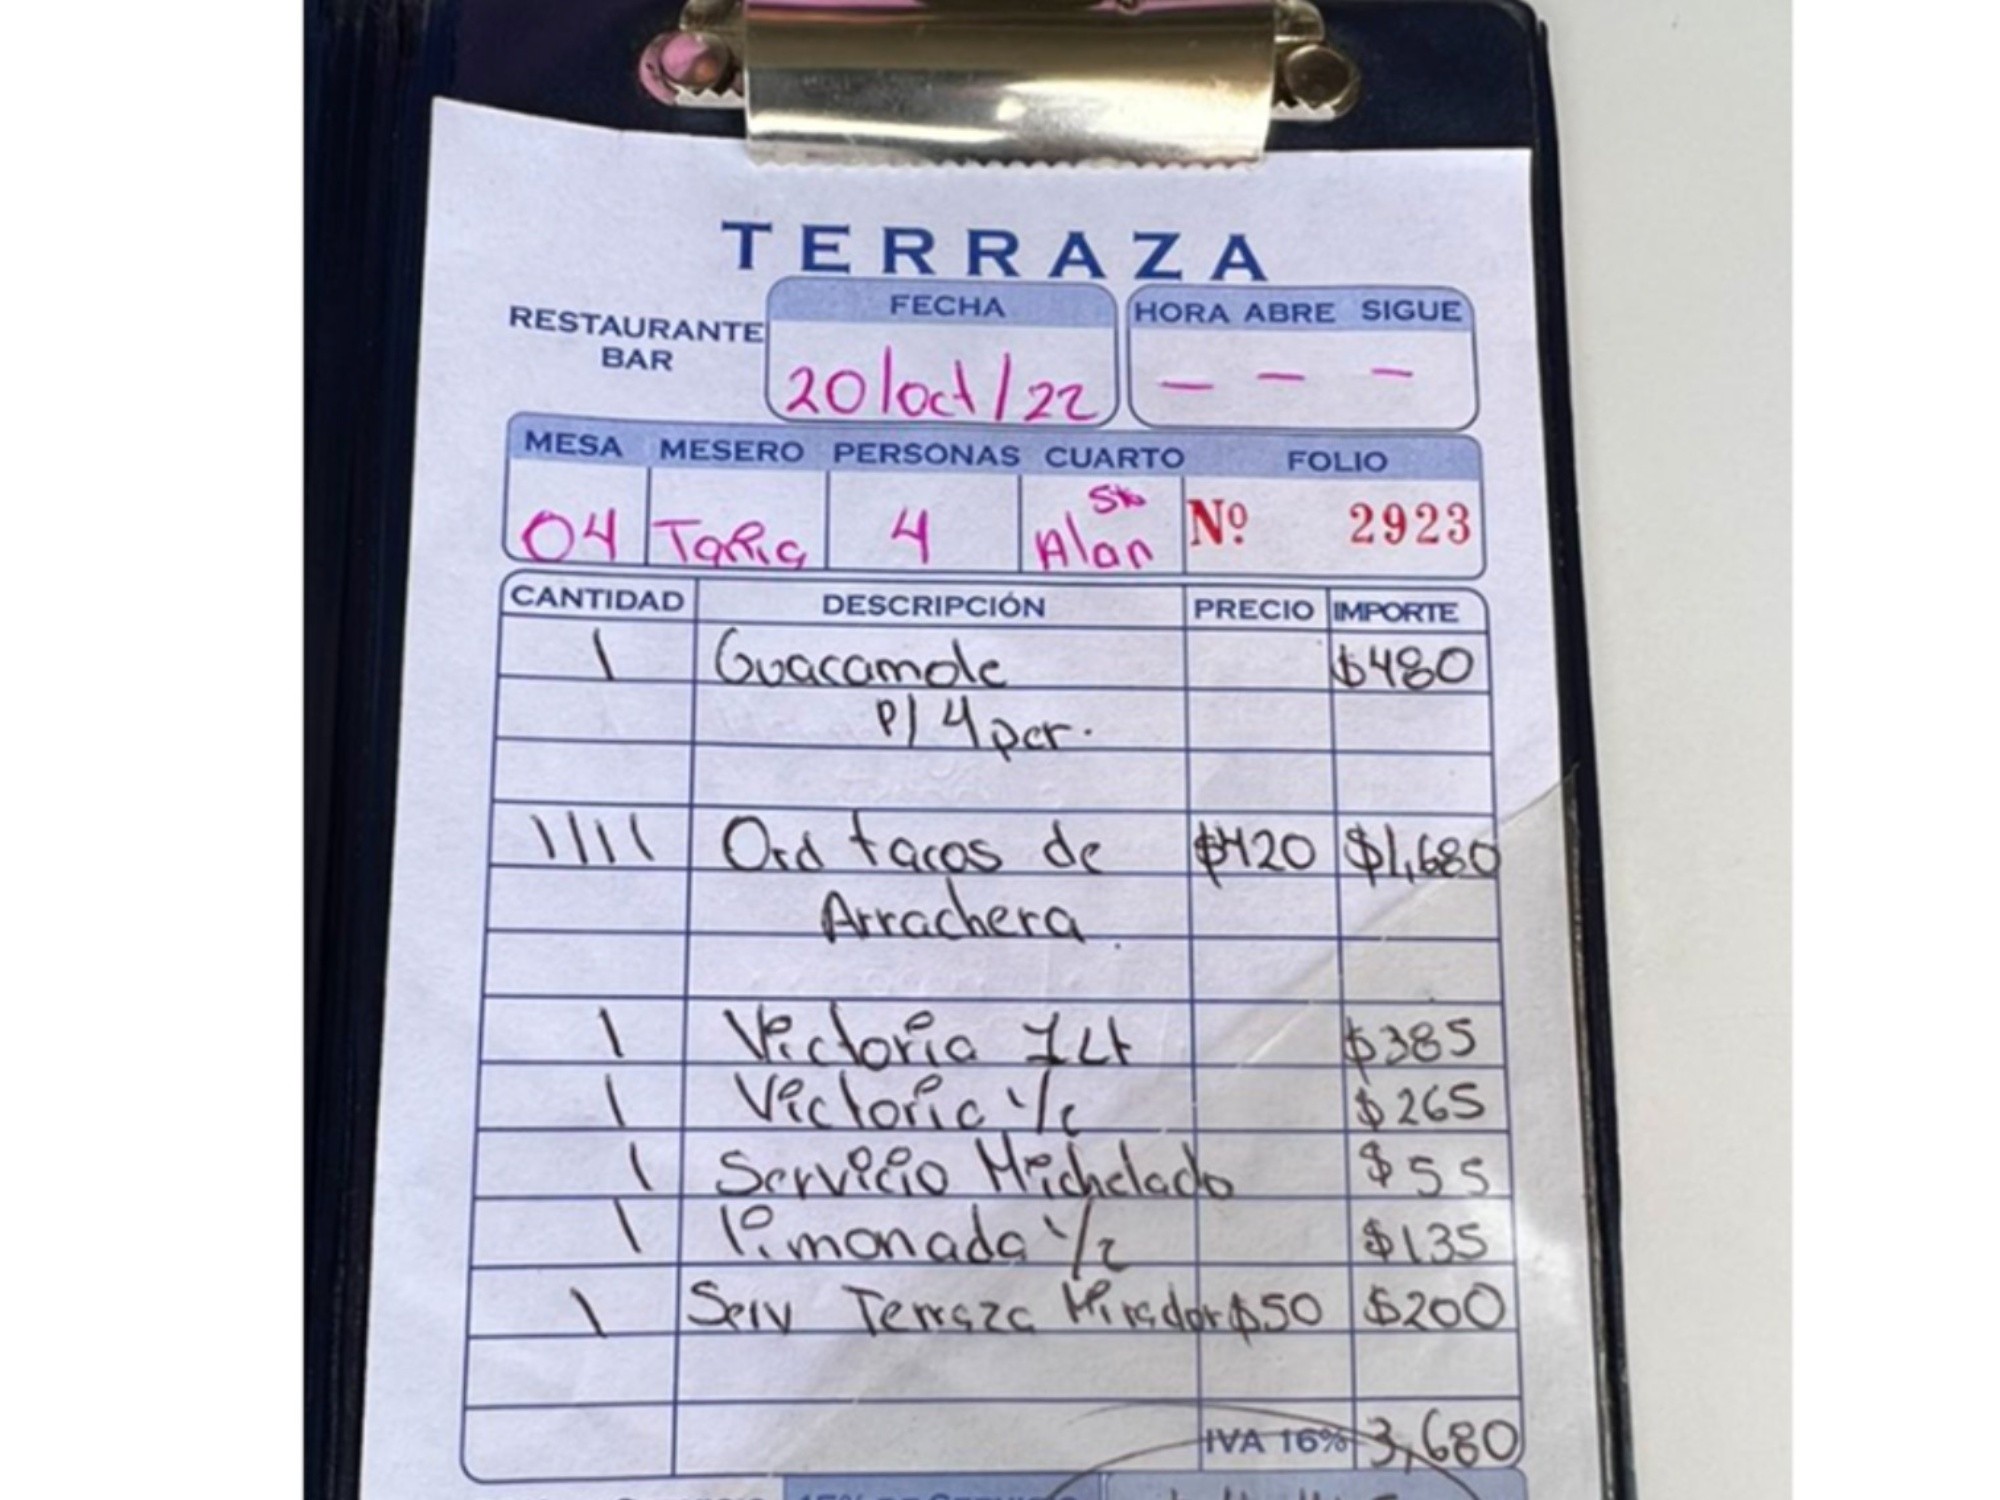 TERRAZA
RESTAURANTE
BAR
FECHA
20/oct/22
HORA ABRE SIGUE
— — —
MESA MESERO PERSONAS CUARTO FOLIO
04 4 Alan Nº 2923
CANTIDAD DESCRIPCIÓN PRECIO IMPORTE
1 Guacamole $480
p/ 4 per.
1111 Ord tacos de $420 $1,680
Arrachera
1 Victoria 1Lt $385
1 Victoria $265
1 Servicio Michelado $55
1 limonada 1/2 $135
1 Serv Terraza Mirador $50 $200
IVA 16% 3,680